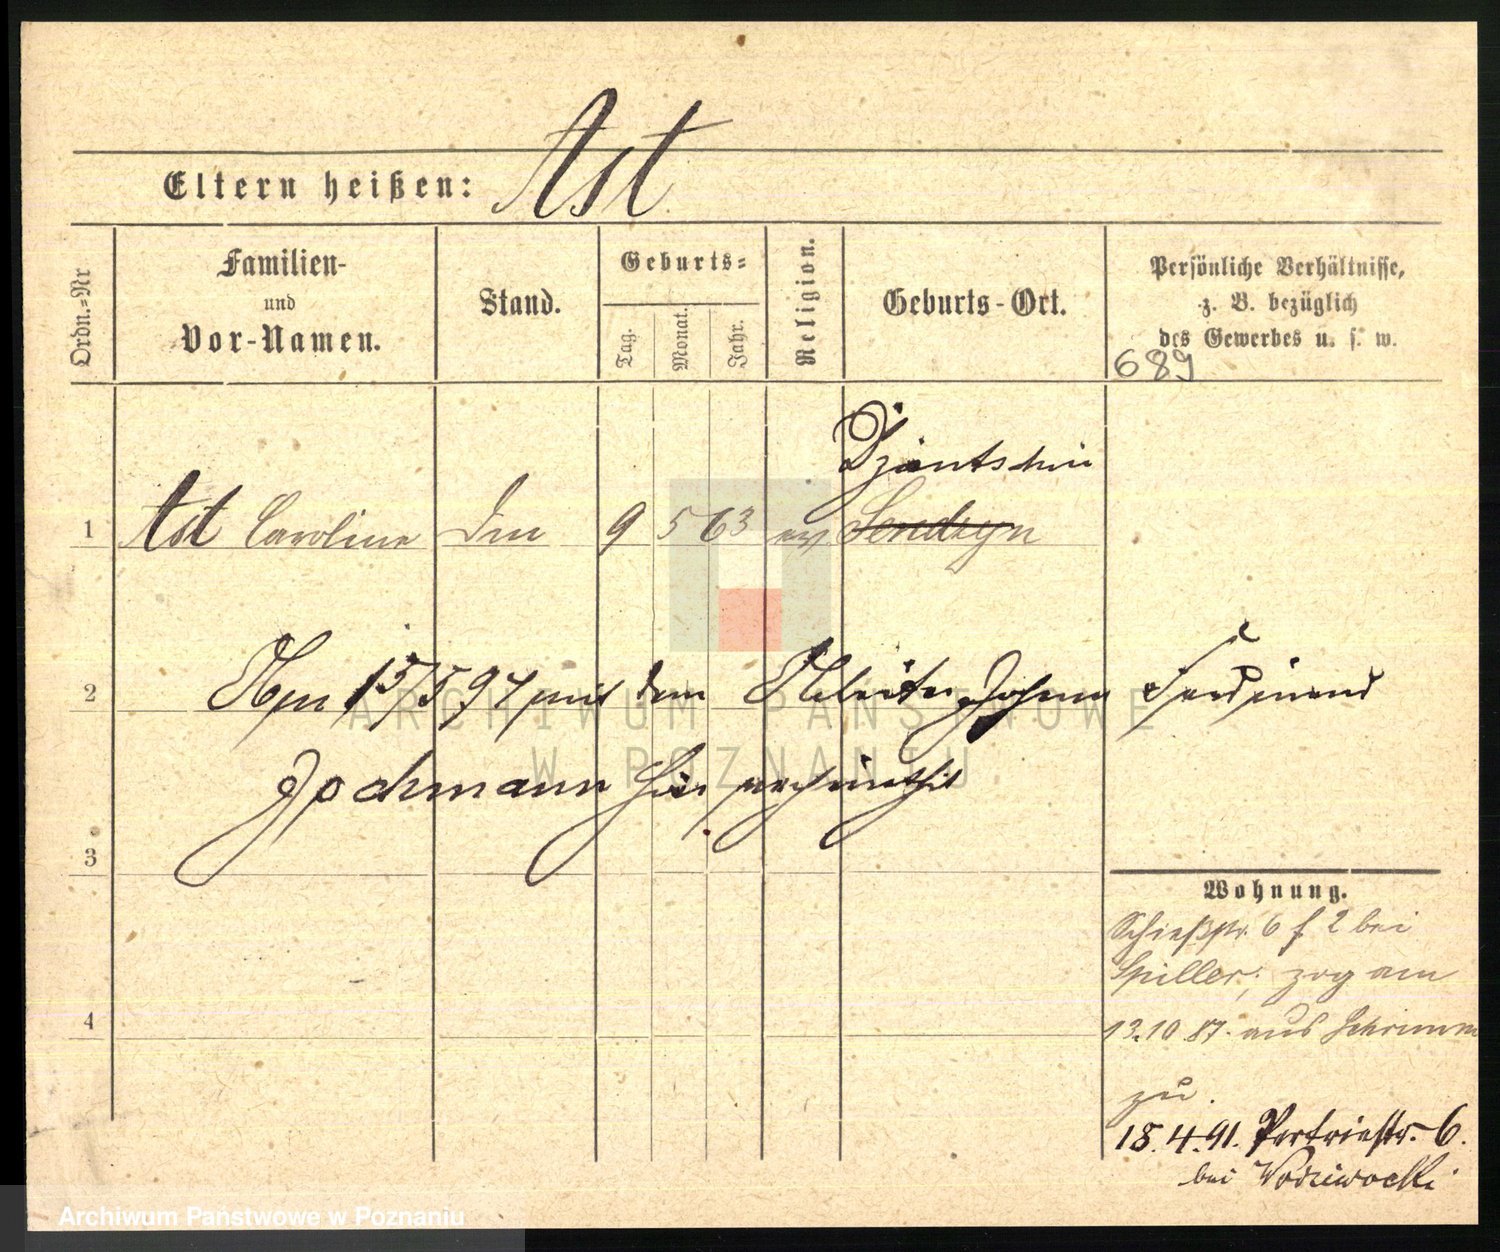 Ast
Eltern heißen:
Ordn.=Nr
Familien-
und
Vor-Namen.
Stand.
Geburts=
Tag.
Monat.
Jahr.
Religion.
Geburts-Ort.
Persönliche Verhältnisse,
z. B. bezüglich
des Gewerbes u. s. w.
689
1 Ast Caroline 9 5 63 ev
2 Am 15/5 97 mit dem Arbeiter Johann Ferdinand
Jochmann hier verheirathet
3
4
Wohnung.
Schießstr. 6 f 2 bei
Spiller, zog am
13.10 87. aus Schrimm
zu.
18.4.91. 6.
bei
ARCHIWUM PAŃSTWOWE
W POZNANIU
Archiwum Państwowe w Poznaniu